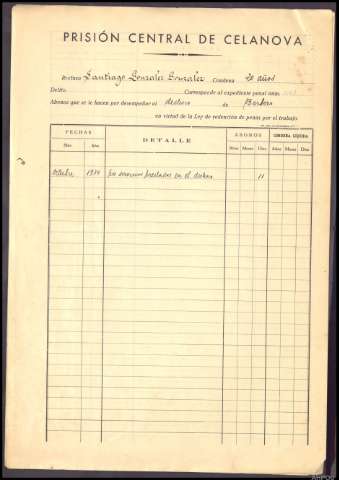 PRISIÓN CENTRAL DE CELANOVA
Recluso Santiago González González Condena 20 años
Delito Corresponde al expediente penal núm.
Abonos que se le hacen por desempeñar el destino de Barbero
en virtud de la Ley de redención de penas por el trabajo
FECHAS DETALLE ABONOS CONDENA LIQUIDA
Mes Año Años Meses Días Años Meses Días
Octubre 1944 por servicios prestados en el destino 11